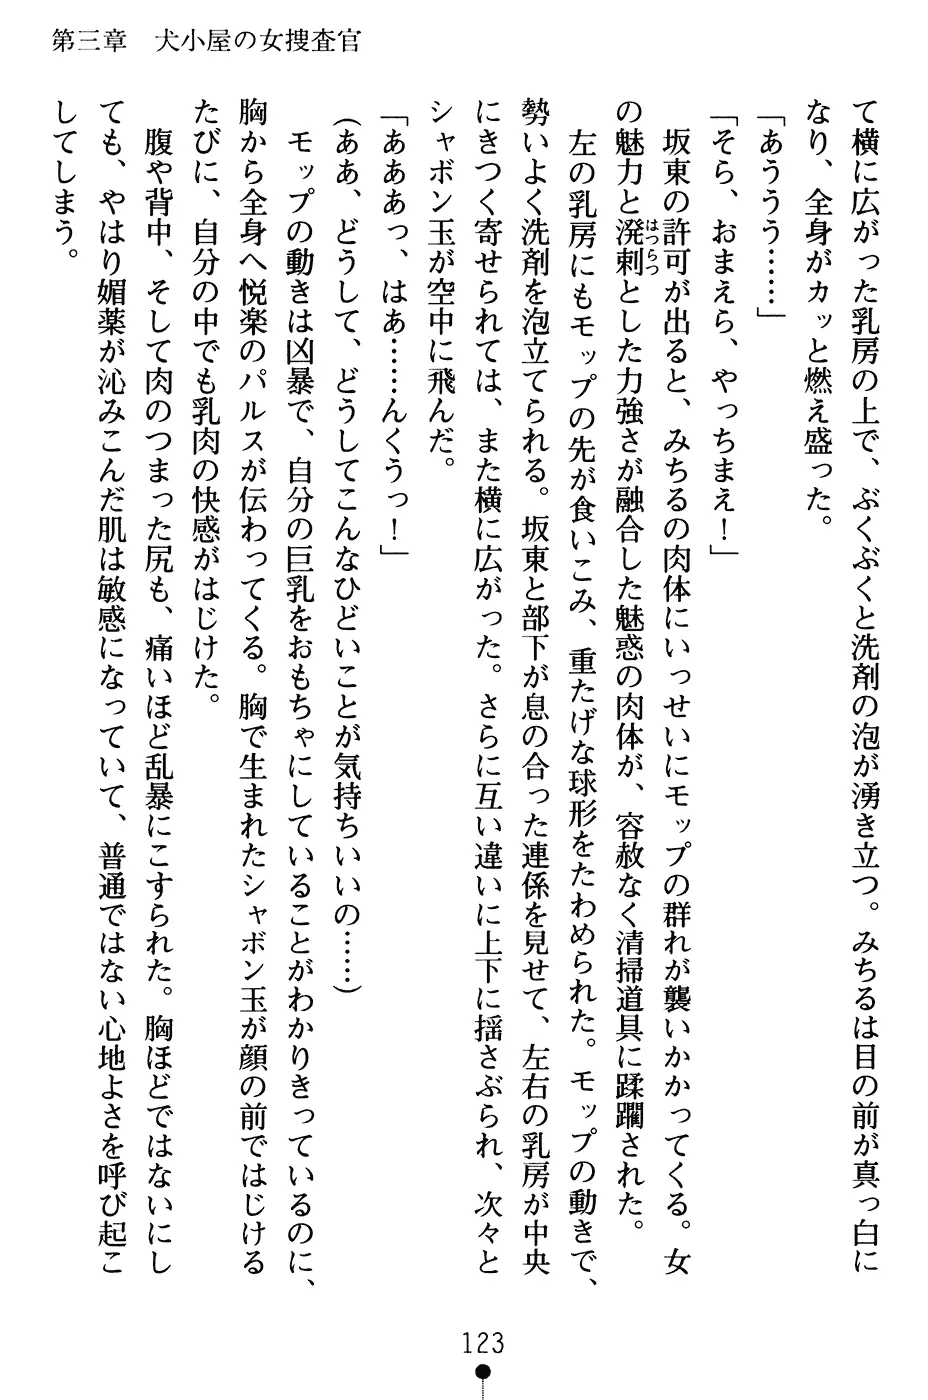 第三章　犬小屋の女捜査官
て横に広がった乳房の上で、ぶくぶくと洗剤の泡が湧き立つ。みちるは目の前が真っ白に
なり、全身がカッと燃え盛った。
「あううう……」
「そら、おまえら、やっちまえ！」
　坂東の許可が出ると、みちるの肉体にいっせいにモップの群れが襲いかかってくる。女
の魅力と溌剌はつらつとした力強さが融合した魅惑の肉体が、容赦なく清掃道具に蹂躙された。
　左の乳房にもモップの先が食いこみ、重たげな球形をたわめられた。モップの動きで、
勢いよく洗剤を泡立てられる。坂東と部下が息の合った連係を見せて、左右の乳房が中央
にきつく寄せられては、また横に広がった。さらに互い違いに上下に揺さぶられ、次々と
シャボン玉が空中に飛んだ。
「あああっ、はあ……んくうっ！」
（ああ、どうして、どうしてこんなひどいことが気持ちいいの……）
　モップの動きは凶暴で、自分の巨乳をおもちゃにしていることがわかりきっているのに、
胸から全身へ悦楽のパルスが伝わってくる。胸で生まれたシャボン玉が顔の前ではじける
たびに、自分の中でも乳肉の快感がはじけた。
　腹や背中、そして肉のつまった尻も、痛いほど乱暴にこすられた。胸ほどではないにし
ても、やはり媚薬が沁みこんだ肌は敏感になっていて、普通ではない心地よさを呼び起こ
してしまう。
123